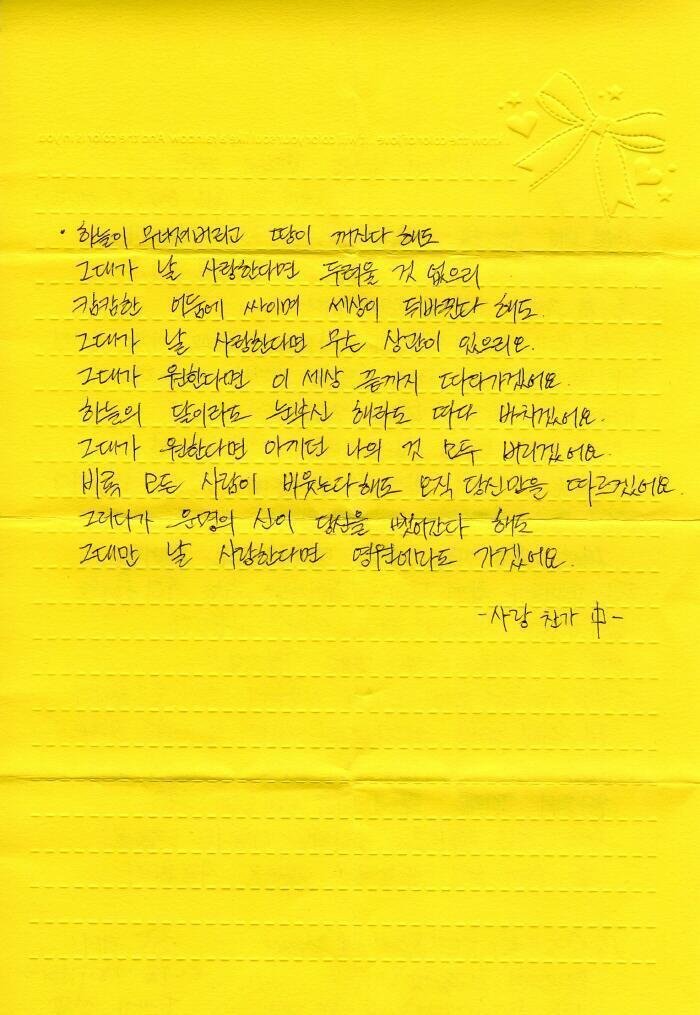 · 하늘이 무너져버리고 땅이 꺼진다 해도
그대가 날 사랑한다면 두려울 것 없으리
캄캄한 어둠에 싸이며 세상이 뒤바뀐다 해도.
그대가 날 사랑한다면 무슨 상관이 있으리오.
그대가 원한다면 이 세상 끝까지 따라가겠어요.
하늘의 달이라도 눈부신 해라도 따다 바치겠어요.
그대가 원한다면 아끼던 나의 것 모두 버리겠어요.
비록 모든 사람이 비웃는다해도 오직 당신만을 따르겠어요.
그러다가 운명의 신이 당신을 뺏어간다 해도
그대만 날 사랑한다면 영원에라도 가겠어요.
-사랑 찬가 中-